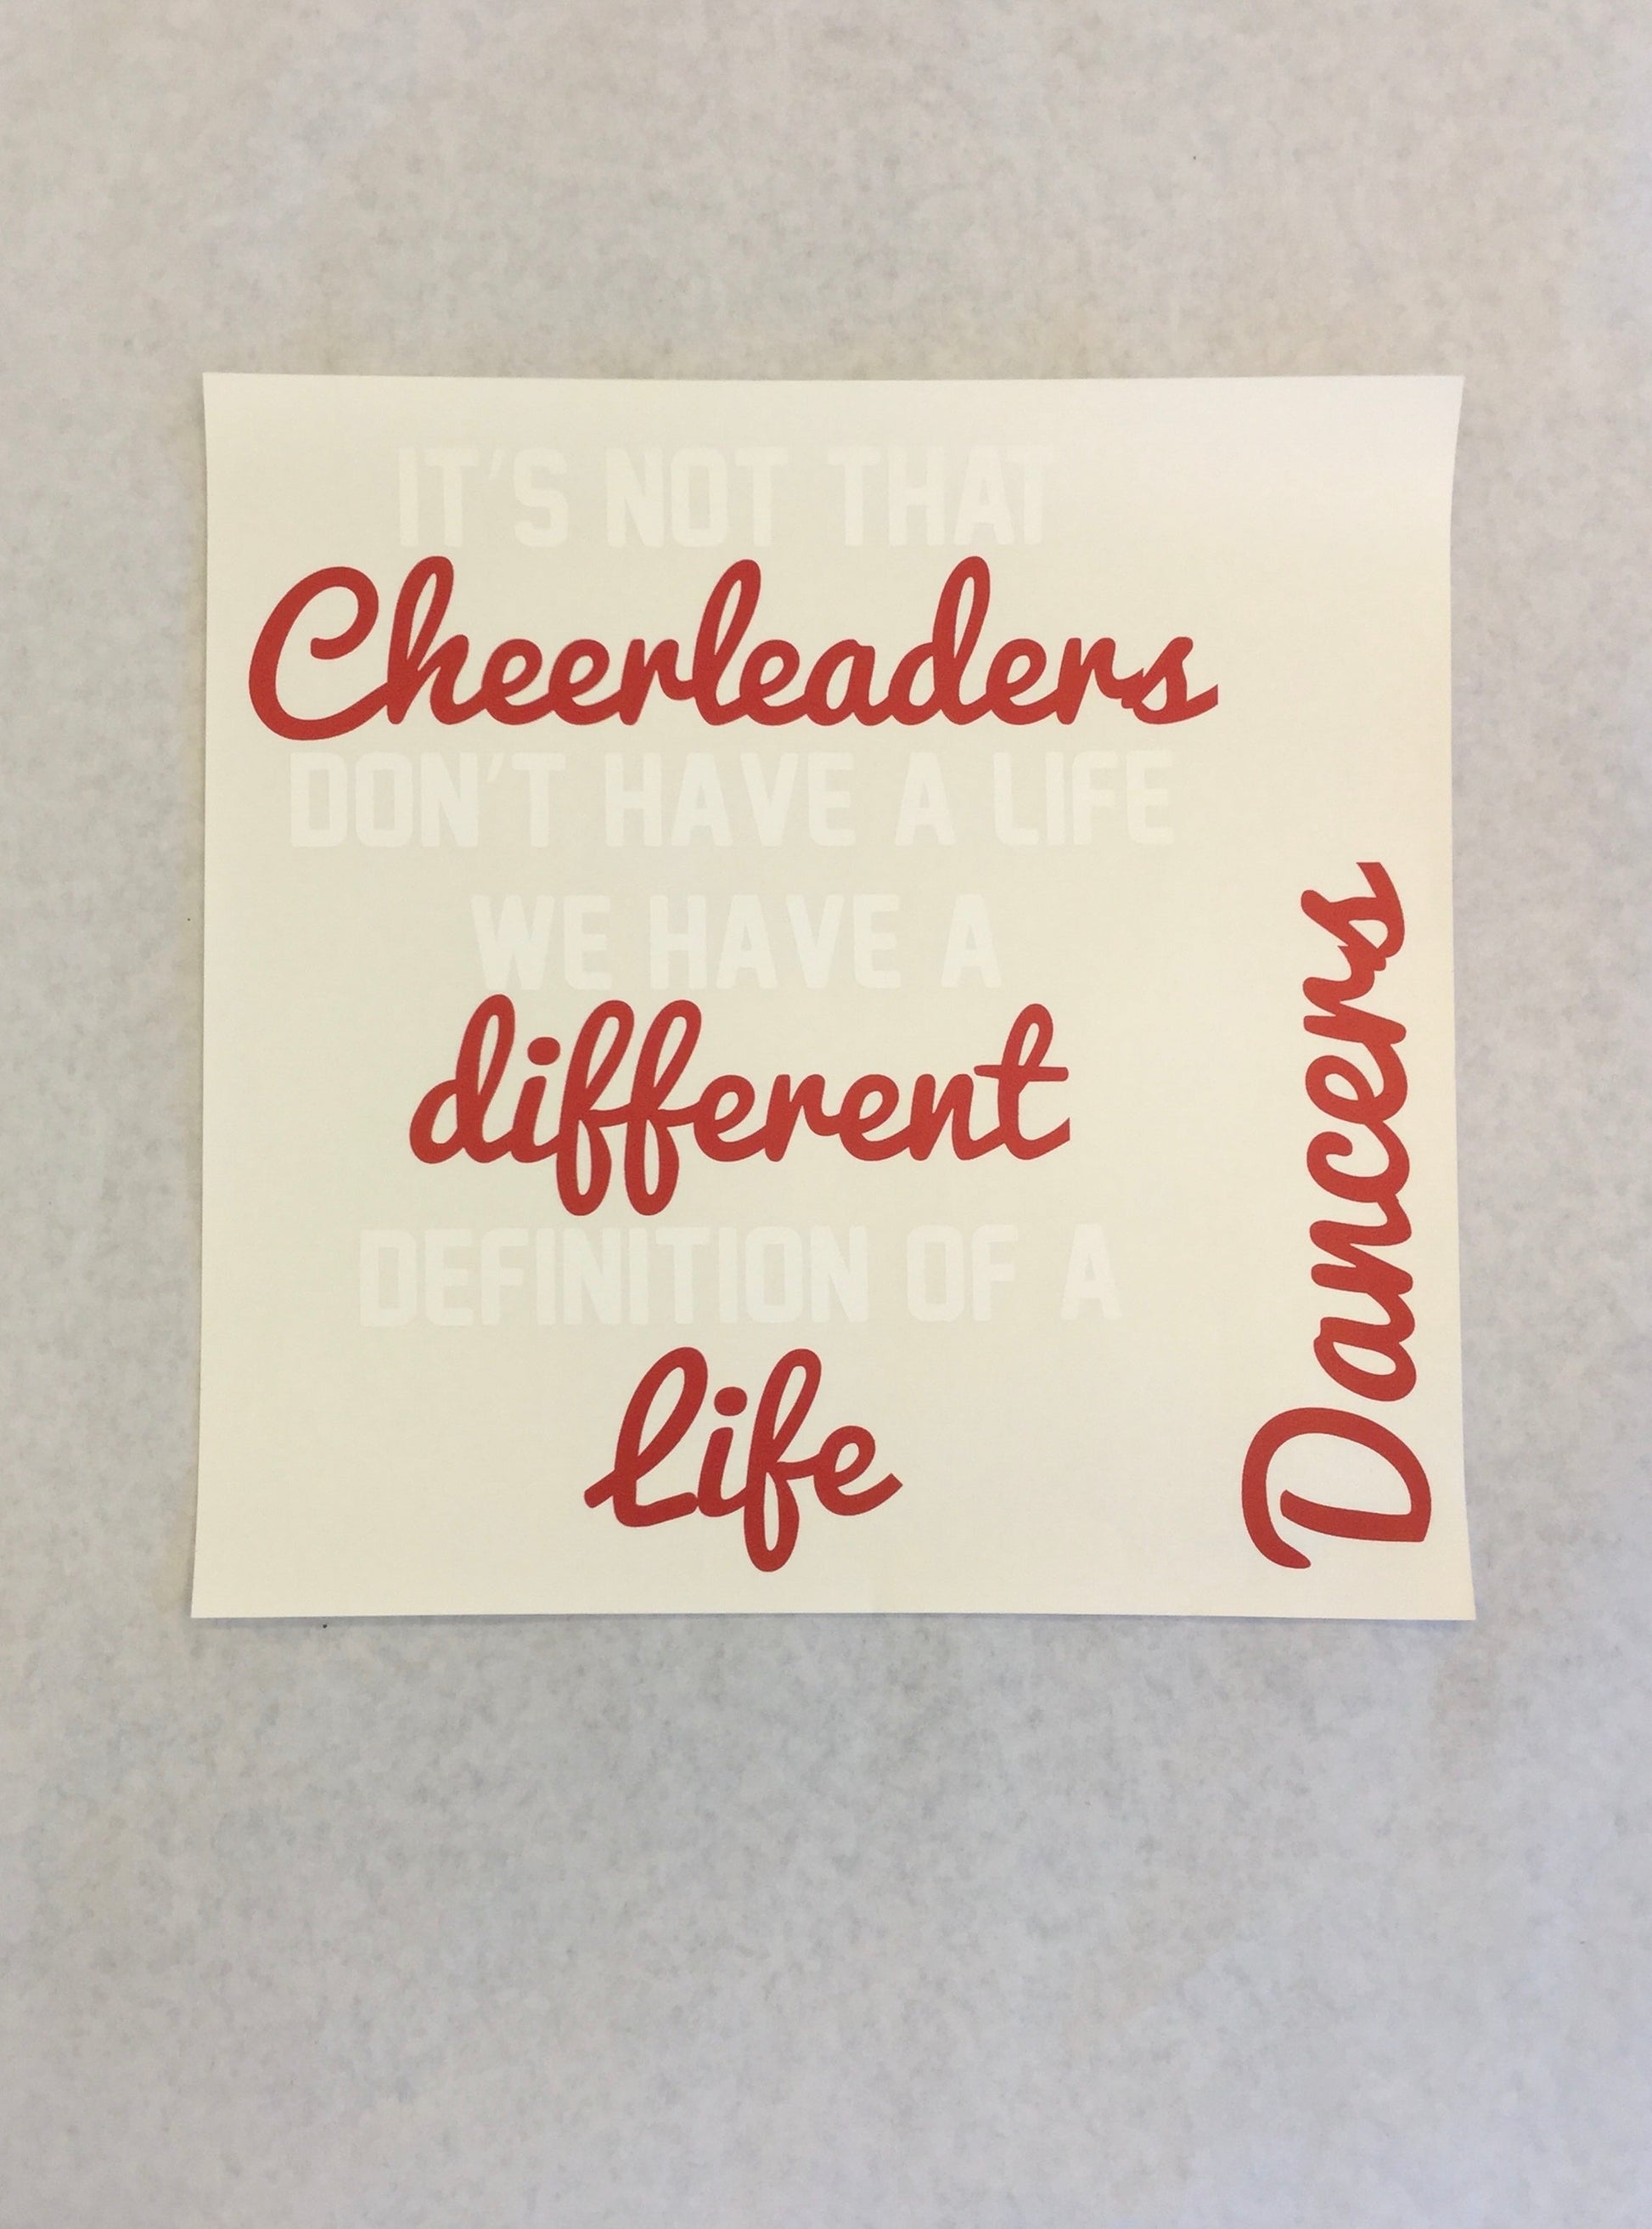 IT'S NOT THAT
Cheerleaders
DON'T HAVE A LIFE
WE HAVE A
different
DEFINITION OF A
life
Dancers